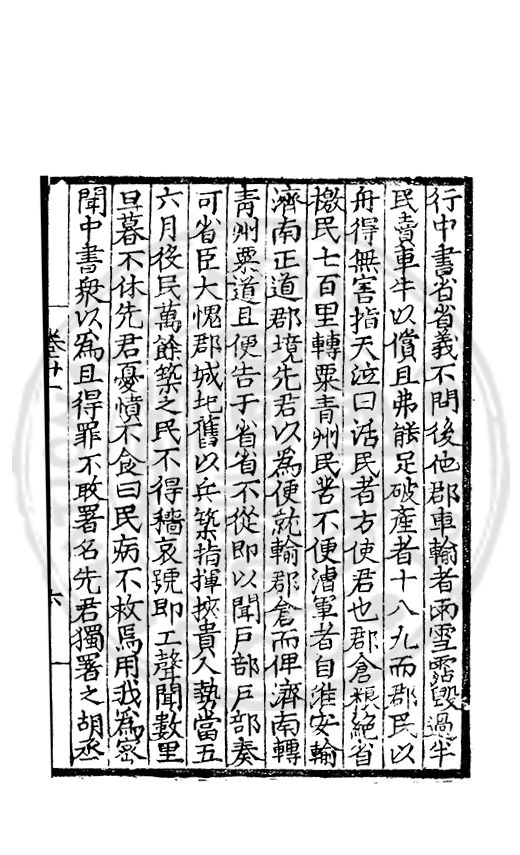 行中書省省義不問後他郡車輸者雨雪霑毀過半
民賣車牛以償且弗能足破產者十八九而郡民以
舟得無害指天泣曰活民者方使君也郡倉粮絕省
檄民七百里轉粟青州民苦不便漕軍者自淮安輸
濟南正道郡境先君以為便就輸郡倉而俾濟南轉
青州粟道且便告于省省不從即以聞戶部戶部奏
可省臣大愧郡城圯舊以兵築指揮挾貴人勢當五
六月役民萬餘築之民不得穡哀號即工聲聞數里
旦暮不休先君憂憤不食曰民病不救焉用我為密
聞中書衆以為且得罪不敢署名先君獨署之胡丞
卷廿一
六